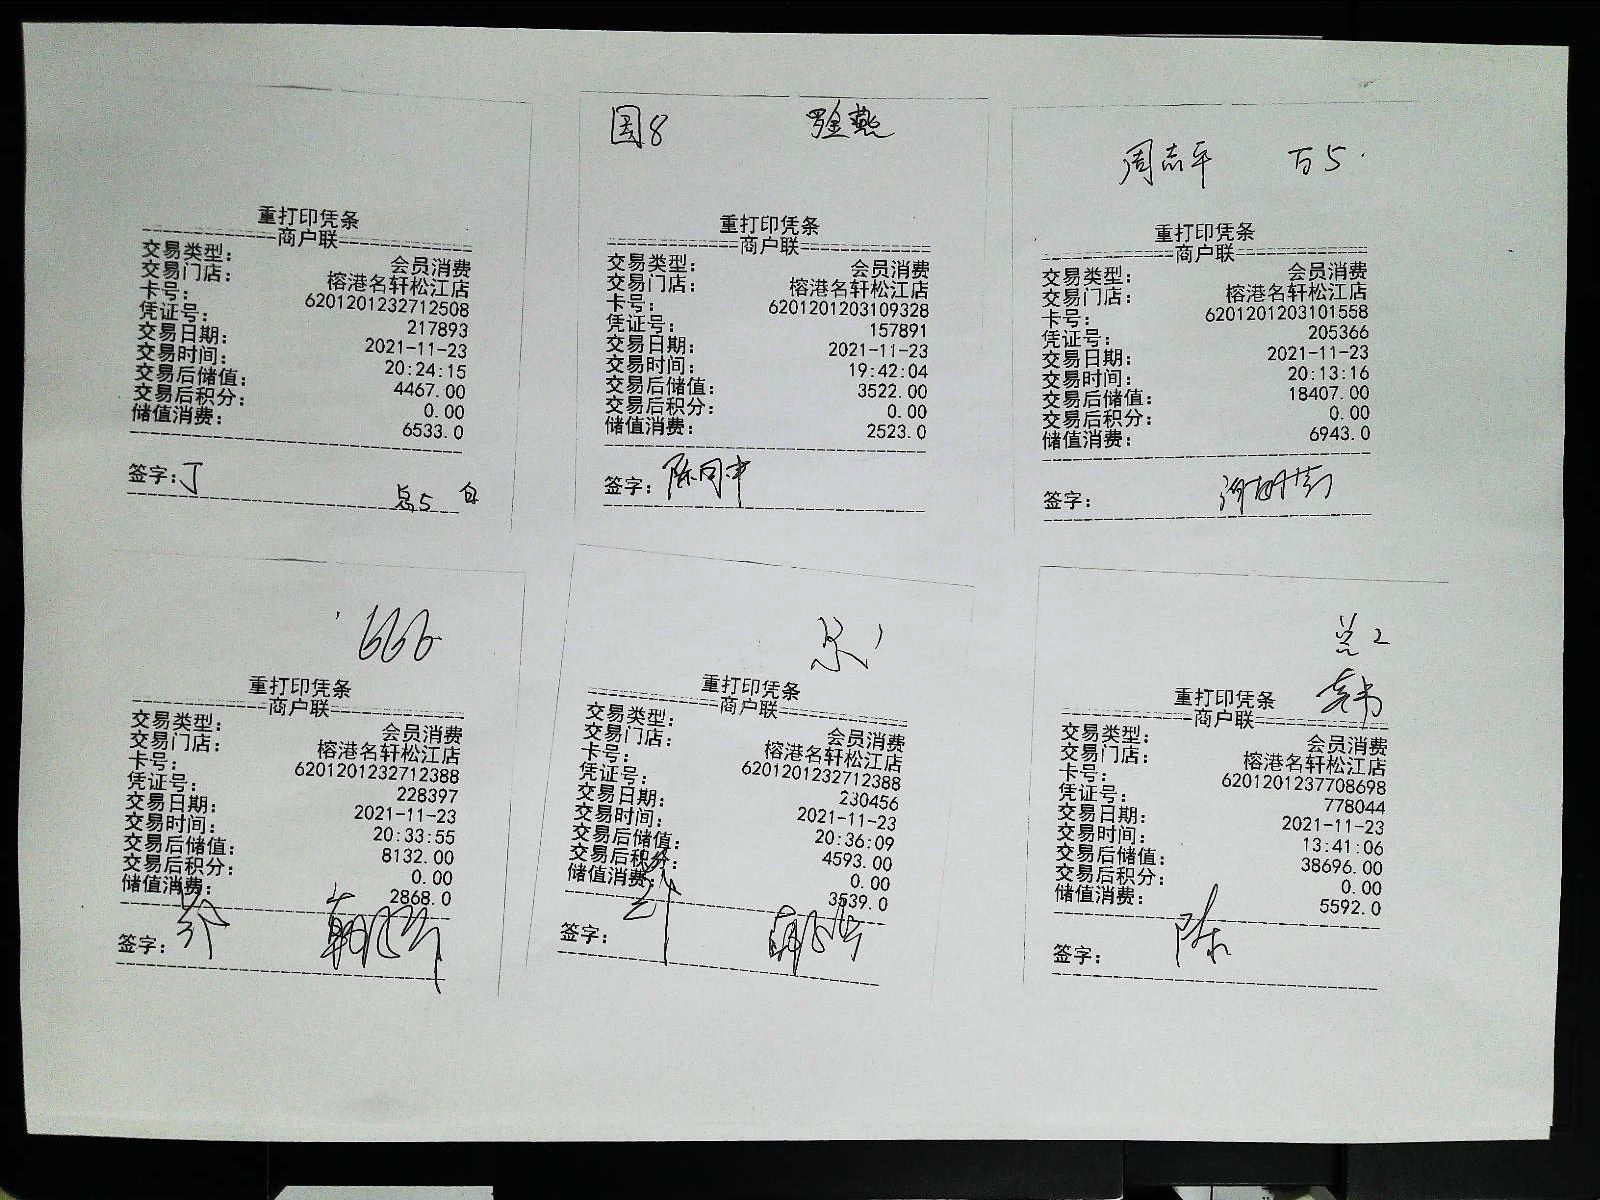 重打印凭条
商户联
交易类型: 会员消费
交易门店: 榕港名轩松江店
卡号: 6201201232712508
凭证号: 217893
交易日期: 2021-11-23
交易时间: 20:24:15
交易后储值: 4467.00
交易后积分: 0.00
储值消费: 6533.0
签字: 丁
总5
国8
重打印凭条
商户联
交易类型: 会员消费
交易门店: 榕港名轩松江店
卡号: 6201201203109328
凭证号: 157891
交易日期: 2021-11-23
交易时间: 19:42:04
交易后储值: 3522.00
交易后积分: 0.00
储值消费: 2523.0
签字:
周志平 万5
重打印凭条
商户联
交易类型: 会员消费
交易门店: 榕港名轩松江店
卡号: 6201201203101558
凭证号: 205366
交易日期: 2021-11-23
交易时间: 20:13:16
交易后储值: 18407.00
交易后积分: 0.00
储值消费: 6943.0
签字:
666
重打印凭条
商户联
交易类型: 会员消费
交易门店: 榕港名轩松江店
卡号: 6201201232712388
凭证号: 228397
交易日期: 2021-11-23
交易时间: 20:33:55
交易后储值: 8132.00
交易后积分: 0.00
储值消费: 2868.0
签字:
重打印凭条
商户联
交易类型: 会员消费
交易门店: 榕港名轩松江店
卡号: 6201201232712388
凭证号: 230456
交易日期: 2021-11-23
交易时间: 20:36:09
交易后储值: 4593.00
交易后积分: 0.00
储值消费: 3539.0
签字:
总2
韩
重打印凭条
商户联
交易类型: 会员消费
交易门店: 榕港名轩松江店
卡号: 6201201237708698
凭证号: 778044
交易日期: 2021-11-23
交易时间: 13:41:06
交易后储值: 38696.00
交易后积分: 0.00
储值消费: 5592.0
签字: 陈